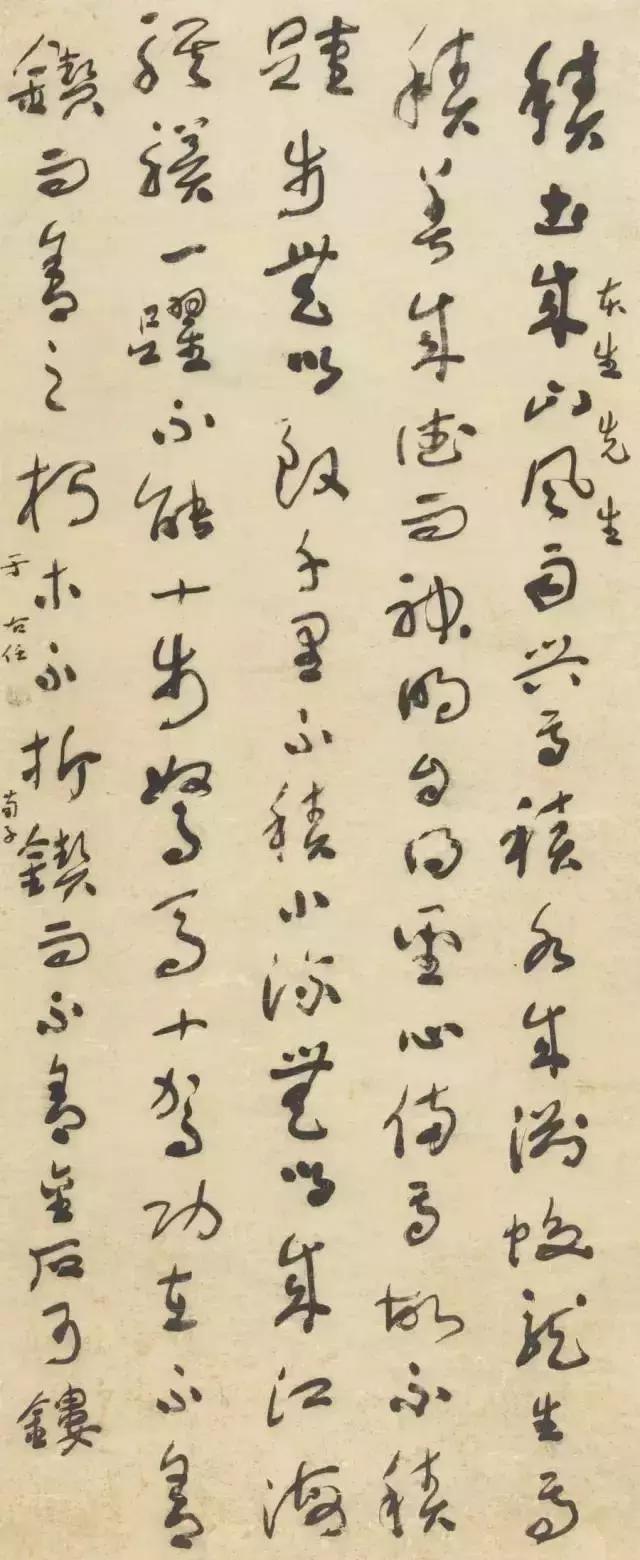 東生先生
積土成山風雨興焉積水成淵蛟龍生焉
積善成德而神明自得聖心備焉故不積
跬步無以致千里不積小流無以成江海
騏驥一躍不能十步駑馬十駕功在不舍
鍥而舍之朽木不折鍥而不舍金石可鏤
荀子
于右任